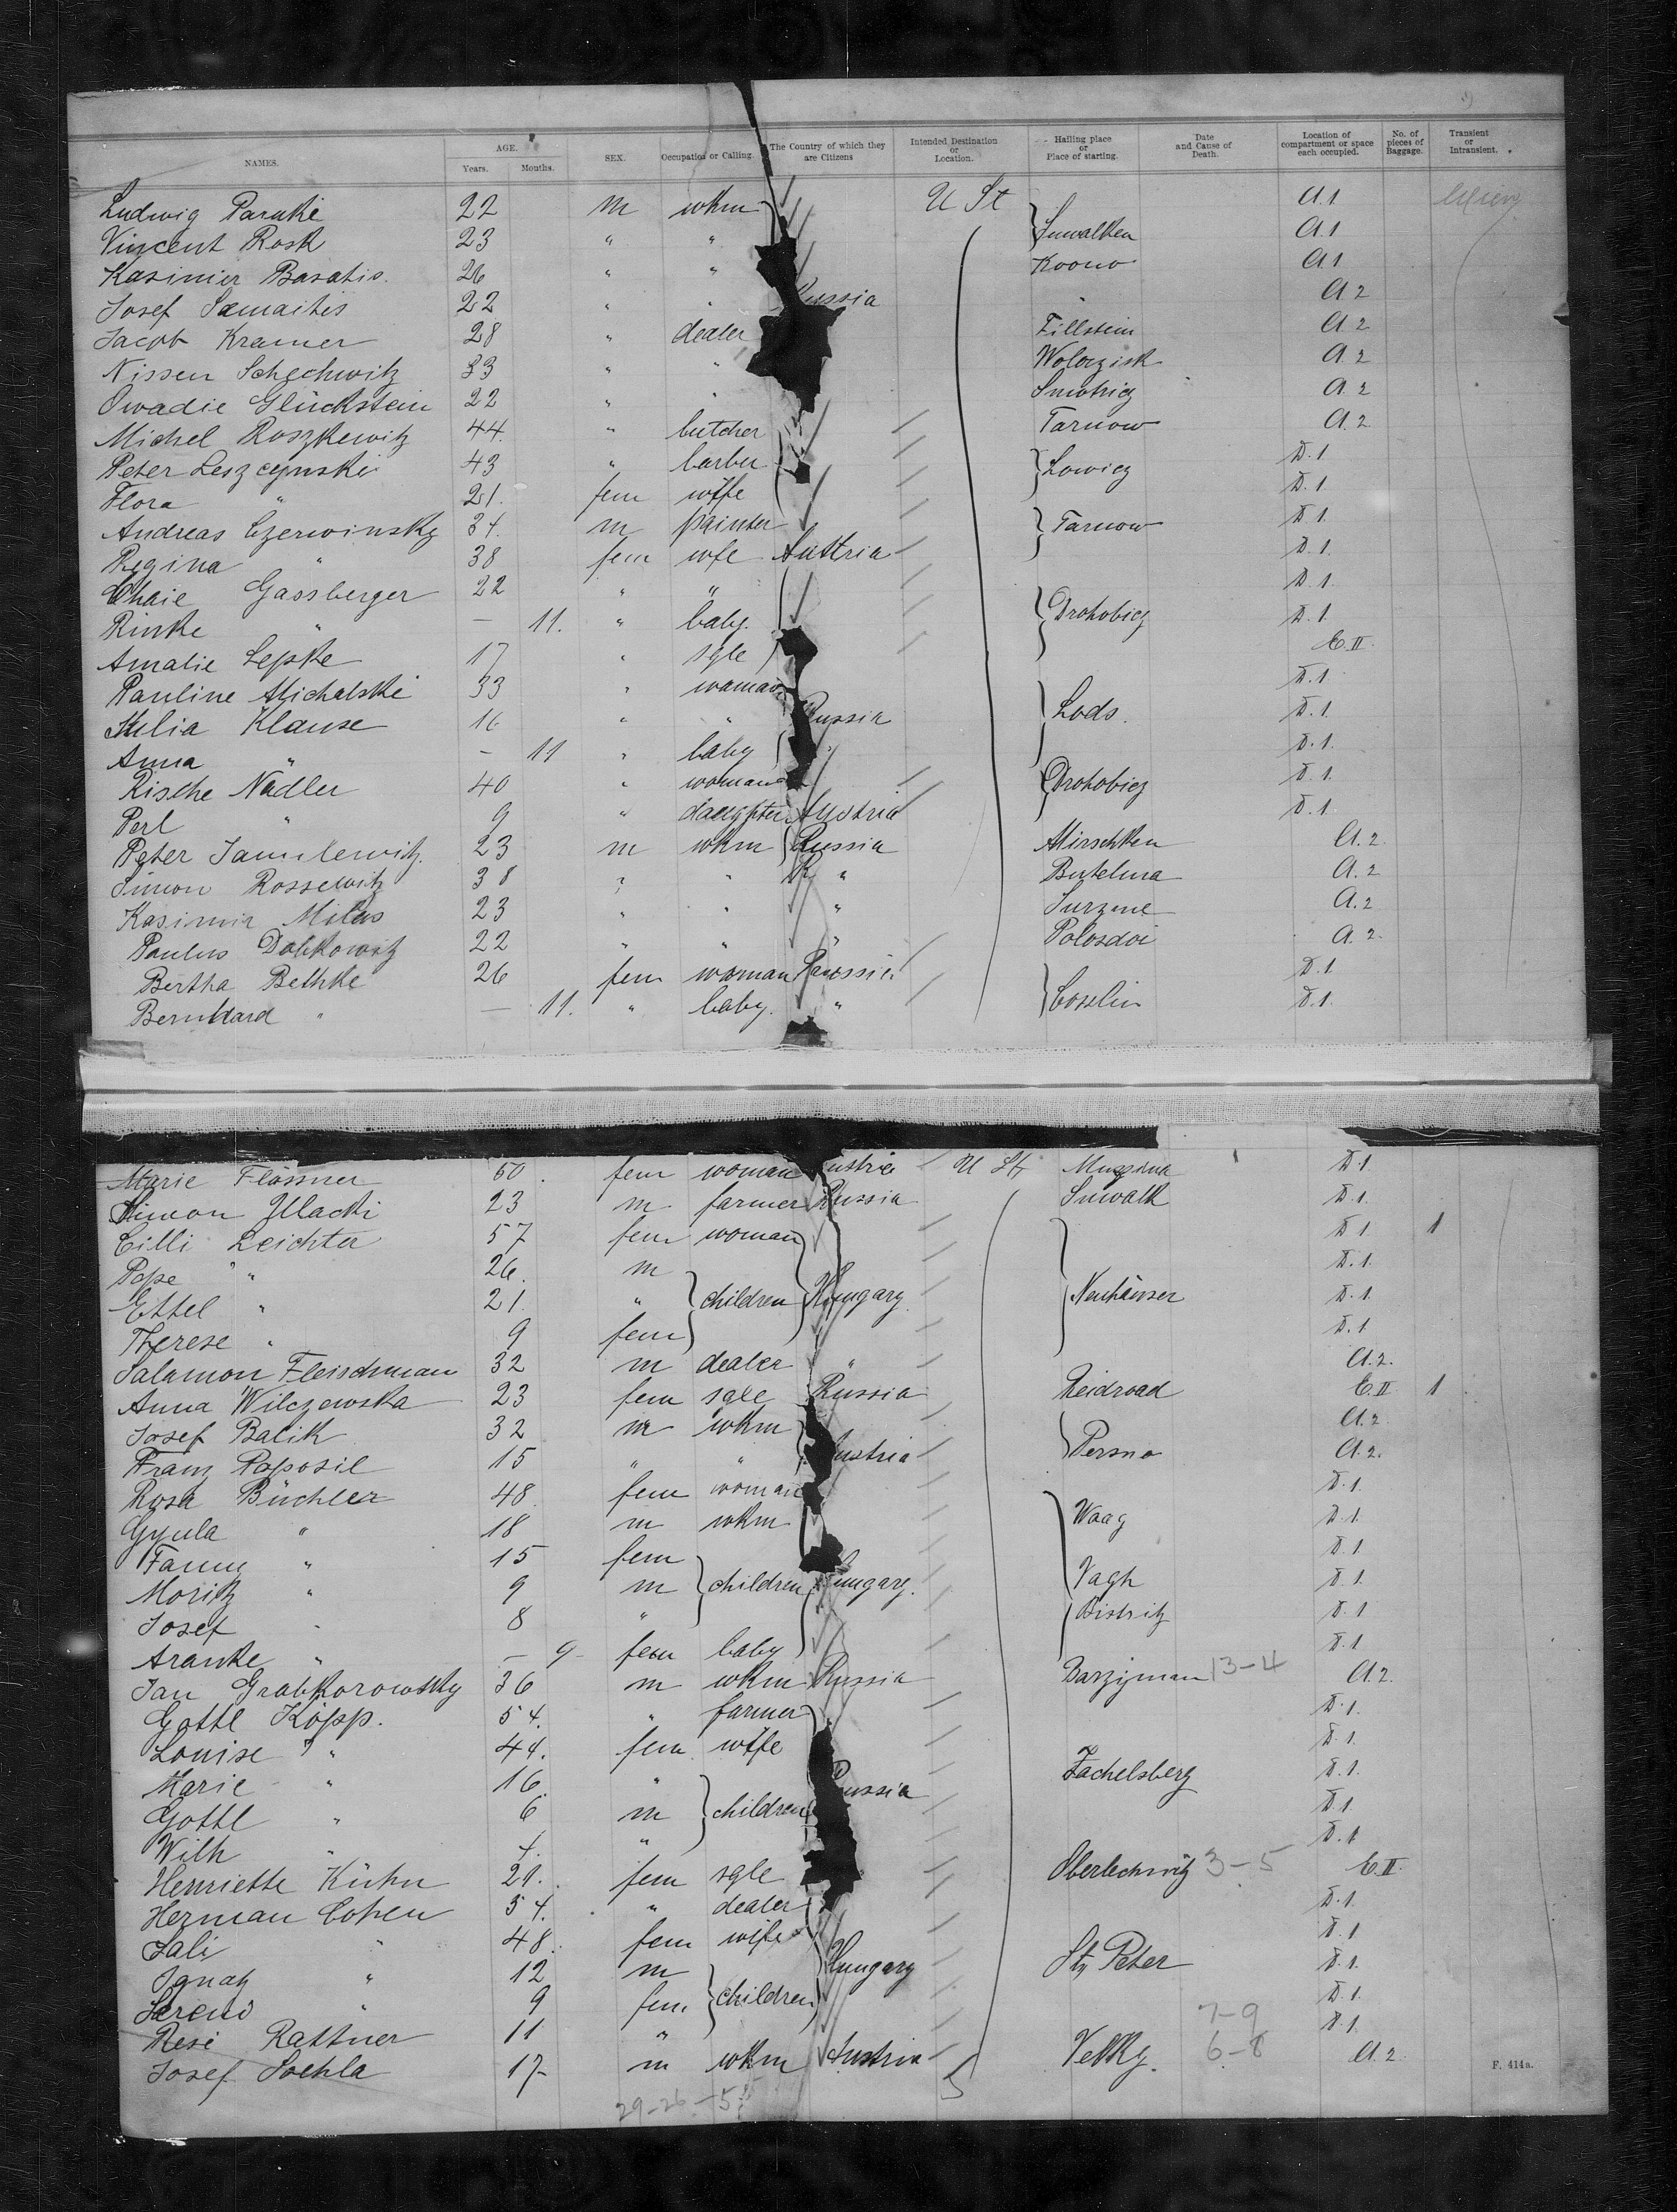 NAMES. AGE. Years. Months. SEX. Occupation or Calling. The Country of which they are Citizens Intended Destination or Location. Hailing place or Place of starting. Date and Cause of Death. Location of compartment or space each occupied. No. of pieces of Baggage. Transient or Intransient.
Ludwig 22 m wkm U St A.1
Vincent Rosk 23 " " Suwalken A1
Kasimier Basatis. 26 " " Koono A1
Josef Samaitis 22 " " Russia " A2
Jacob Kramer 28 " dealer Fillstein A2
Nissen Schechwitz 33 " " Woloczisk A2
Owadie Glückstein 22 " " Smotricz A2
Michel Roszkewitz 44. " butcher Tarnow A.2
Peter Leszcynski 43 " barber Lowicz D.1
Flora " 21. fem wife D.1
Andreas Czerwinsky 34. m painter Tarnow D.1
Regina " 38 fem wfe Austria D.1.
Chaie Gassberger 22 " " D.1
Rinke " — 11. " baby. Drohobicz D.1
Amalie Lepke 17 " sgle E.II.
Pauline Michalski 33 " woman D.1
Julia Klause 16 " " Russia Lods. D.1.
Anna " — 11 " baby D.1.
Rische Nadler 40 " woman Drohobicz D.1.
Perl " 9 " Austria D.1.
Peter 23 m wkm Russia Mirschken A.2
Simon Rossewitz 38 " " " Butelma A.2
Kasimir Milus 23 " " " A.2
Paulus Dabkowitz 22 " " " Polosdoi A.2.
Bertha Bethke 26 fem woman D.1
Bernhard " — 11. " baby. " Cosslin D.1.
Marie Flössner 60. fem woman Austria U St D.1
Simon 23 m farmer Russia Suwalk D.1.
Cilli Leichter 57 fem woman D.1 1
Pepe " 26. m D.1.
Ettel " 21. " children Hungary Neuhäuser D.1.
Therese " 9 fem D.1
Salamon Fleischman 32 m dealer " A.2.
Anna Wilczewska 23 fem sgle Russia Reidroad E.II 1
Josef Balik 32 m wkm A.2
Franz Paposil 15 " " Austria Persno A2.
Rosa Büchler 48. fem woman D.1.
Gyula " 18 m wkm Waag D.1
Fanny " 15 fem D.1
Moritz " 9 m children Hungary. Vagh D.1
Josef " 8 " Bistritz D.1
Aranke " — 9 fem baby D.1
Jan Grabkorowsky 36 m wkm Russia Barzijman 13-4 A2.
Gottl Köpp. 54. " farmer D.1.
Louise " 44. fem wife D.1.
Marie " 16. " Russia Zachelsberg D.1.
Gottl " 6 m children D.1
Wilh " 4. " D.1
Henriette Kühn 21. fem sgle 3-5 E.II.
Herman Cohen 54. " dealer D.1.
Sali " 48. fem wife D.1
Ignatz " 12 m Hungary St Peter D.1.
" 9 fem children D.1.
Resi Rattner 11 " 7-9 D.1.
Josef Soehla 17 m wkm Austria 6-8 A.2
29-26-5
F. 414a.